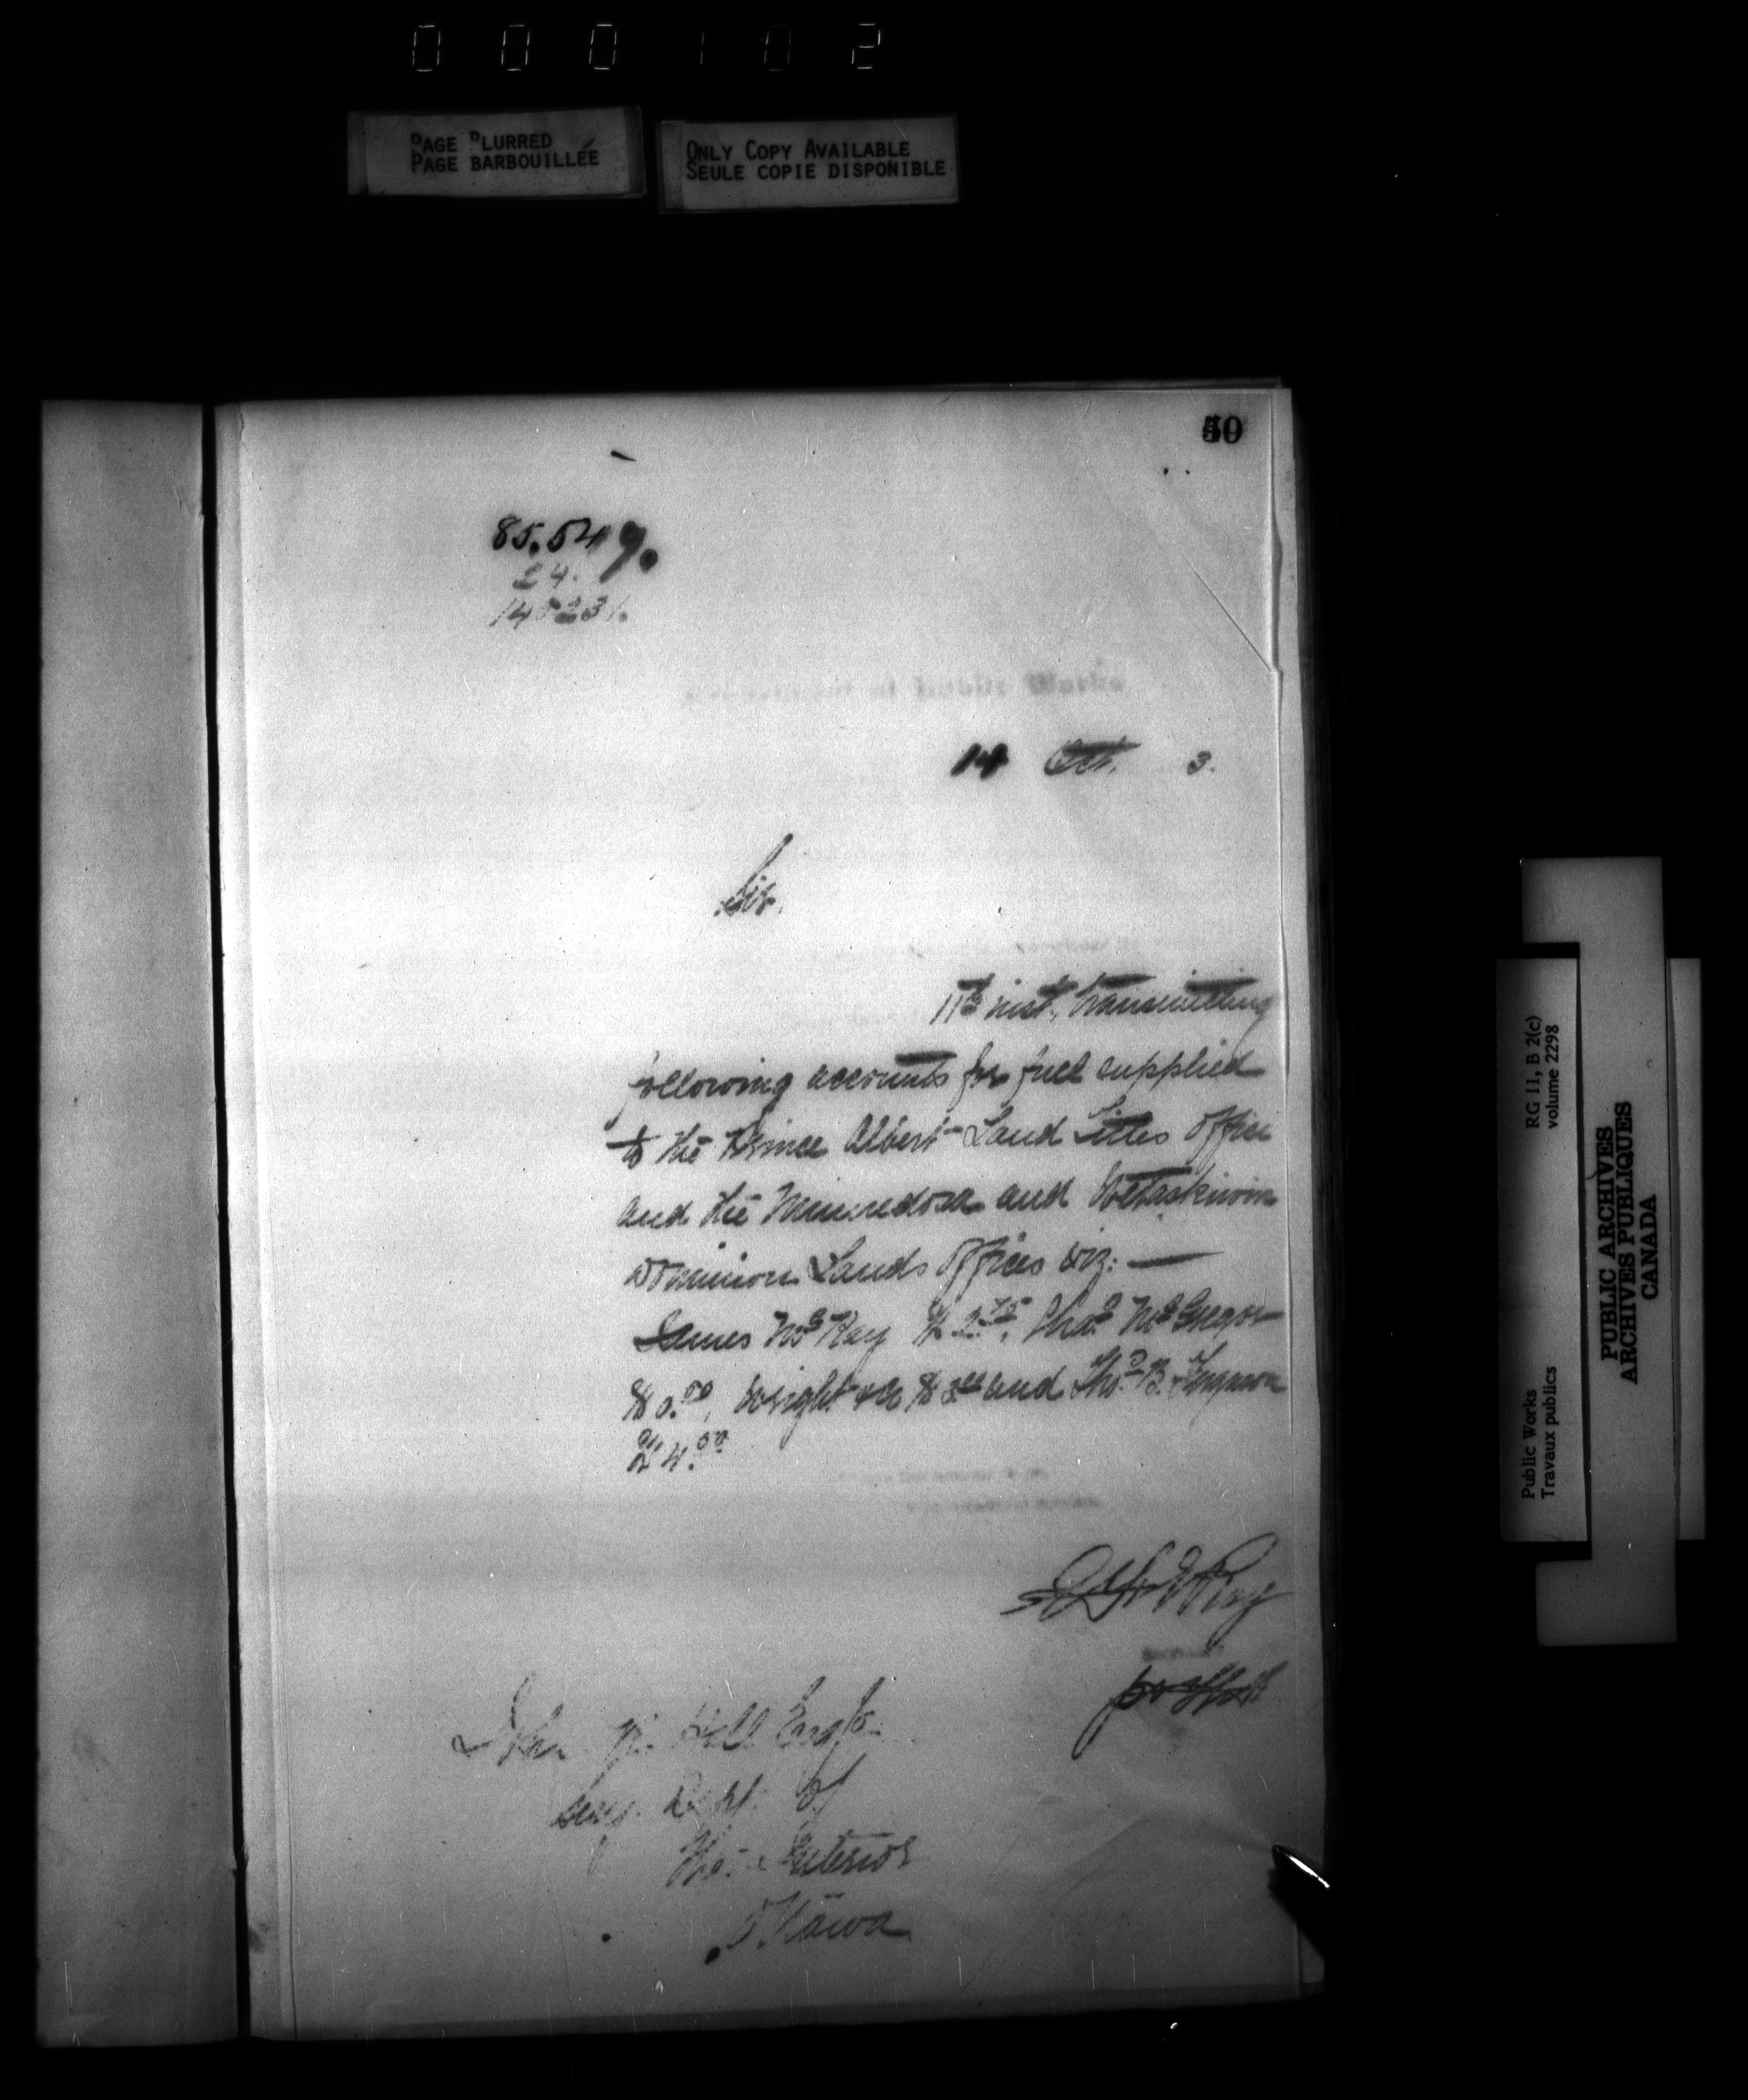 000102
PAGE BLURRED
PAGE BARBOUILLÉE
ONLY COPY AVAILABLE
SEULE COPIE DISPONIBLE
85.549.
24.
Public Works
14 Oct. 3.
Sir,
11th inst., transmitting
following accounts for fuel supplied
to the Prince Albert Land Titles Office
and the Minnedosa and Wetaskiwin
Dominion Lands Offices viz:—
James McKay $2.75, Chas. McGregor
Wright &Co and Thos. B. Ferguson
$4.50
Roy
Esqr.
Secy. Dept. of
the Interior
Ottawa
Public Works
Travaux publics
RG 11, B 2(c)
volume 2298
PUBLIC ARCHIVES
ARCHIVES PUBLIQUES
CANADA